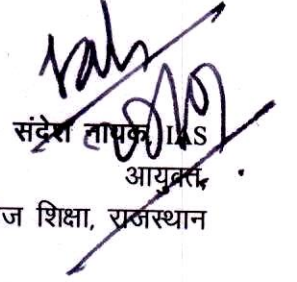 संदेश नायक, IAS
आयुक्त,
ज शिक्षा, राजस्थान